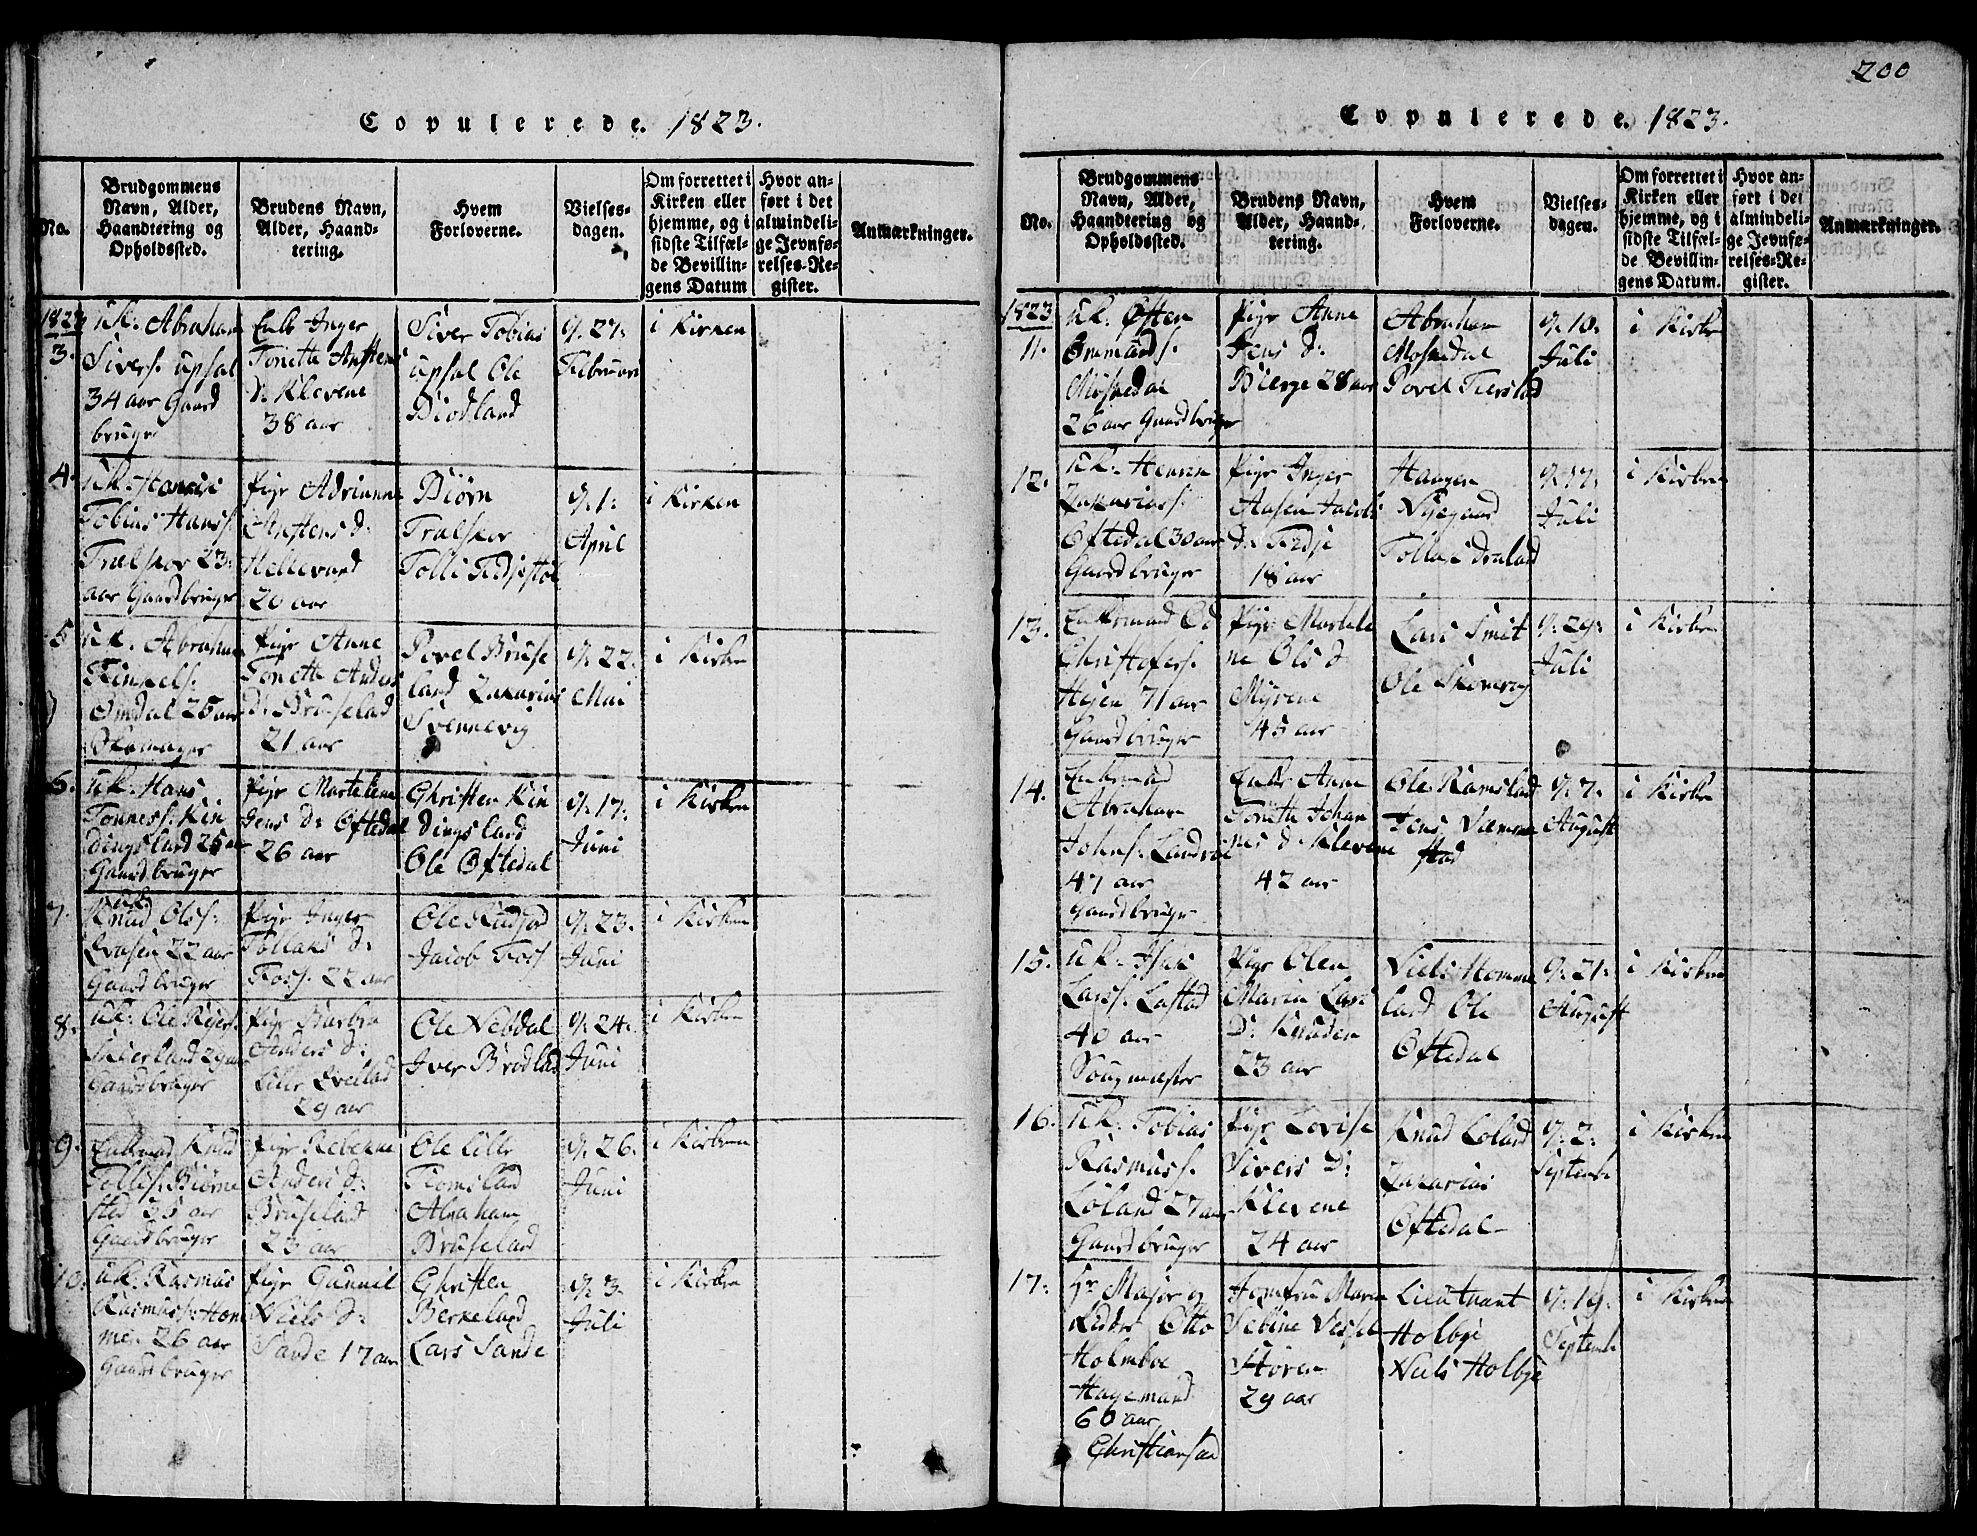 Copulerede. 1823.
No.
Brudgommens
Navn, Alder,
Haandtering og
Opholdssted.
Brudens Navn,
Alder, Haand-
tering.
Hvem
Forloverne.
Vielses-
dagen.
Om forrettet i
Kirken eller
hjemme, og i
sidste Tilfæl-
de Bevillin-
gens Datum
Hvor an-
ført i det
almindeli-
ge Jevnfø-
relses-Re-
gister.
Anmærkninger.
1823
3.
uk. Abraham
Sivers. upsal
34 aar Gaard
bruger
Enke Inger
Tonette
D. Klevene
38 aar
Siver Tobias
upsal Ole
Biodland
d. 27:
Februari
i Kirken
4.
uk.
Tobias Hanss.
Tralskor 23
aar Gaardbruger
Pige Adrianne
D:
Hellevard
20 aar
Biørn
Tralskor
Tolli
d. 1:
April
i Kirken
5
uk. Abraham
Omdal 25 aar
Pige Anne
Tonette Anders
D: Bruselad
21 aar
Povel Bruse
land Zakarias
Svennevig
d. 22.
Mai
i Kirken
6.
uk. Hans
Tonness. Kin
dingsland 25 aar
Gaardbruger
Pige Martelene
Jens D: Oftedal
26 aar
Christen Kin
dingsland
Ole Oftedal
d. 17.
Juni
i Kirken
7.
uk.
Knud Olss.
22 aar
Gaardbruger
Pige Inger
Tollaks D:
Foss. 22 aar
Ole
Jacob Foss
d. 23.
Juni
i Kirken
8.
uk. Ole
29 aar
Gaardbruger
Pige Barbra
Anders D:
Lille
29 aar
Ole Nebdal
Iver Brodlad
d. 24.
Juni
i Kirken
9.
Enkemad Knud
Tollefs. Biørne
sted 35 aar
Gaardbruger
Pige Rebekke
Anders D:
Bruseland
23 aar
Ole Lille
Abraham
Bruseland
d. 26.
Juni
i Kirken
10.
uk. Rasmus
Rasmuss. Hom
me. 26 aar
Gaardbruger
Pige Gunnil
Niels D:
Sande 17 aar
Christen
Berkeland
Lars Sande
d. 3.
Juli
i Kirken
200
Copulerede. 1823.
No.
Brudgommens
Navn, Alder,
Haandtering og
Opholdssted.
Brudens Navn,
Alder, Haand-
tering.
Hvem
Forloverne.
Vielses-
dagen.
Om forrettet i
Kirken eller
hjemme, og i
sidste Tilfæl-
de Bevillin-
gens Datum.
Hvor an-
ført i det
almindeli-
ge Jevnfø-
relses-Re-
gister.
Anmærkninger.
1823
11.
uk. Østen
Ommunds.
Moskedal
26 aar Gaardbruger
Pige Anne
Jens D:
Bierge 28 aar
Abraham
Moskedal
Povel
d. 10.
Juli
i Kirken
12.
uk.
Zakariass.
Oftedal 30 aar
Gaardbruger
Pige Inger
Jacobs
D.
18 aar
Haagen
d. 17.
Juli
i Kirken
13.
Enkemand Ole
Christofers.
71 aar
Gaardbruger
Pige Martele
ne Ols D
Myrene
45 aar
Lars Smit
Ole
d. 29.
Juli
i Kirken
14.
Enkemad
Abraham
Johns.
47 aar
Gaardbruger
Enke Anne
Tonette Johan
nes D. Klevene
42 aar
Ole Ramslad
Jens
stad
d. 7.
August
i Kirken
15.
uk.
Larss. Lastad
40 aar
Pige Olen
Maria Lars
D: Knuden
23 aar
Niels Homme
lard Ole
Oftedal
d. 21:
August
i Kirken
16.
uk. Tobias
Rasmuss.
Loland 27 aar
Gaardbruger
Pige Lovise
Sivers D:
Klevene
24 aar
Knud Loland
Zakarias
Oftedal
d. 2:
Septembr
i Kirken
17.
Hr Major og
Ridder Otto
Holmboe
Hagemand
60 aar
Christiansan
Jomfru Maren
Sebine Vessel
Støren
29 aar
Lieutnant
Holbye
Niels Holbye
d. 19.
Septembr
i Kirken